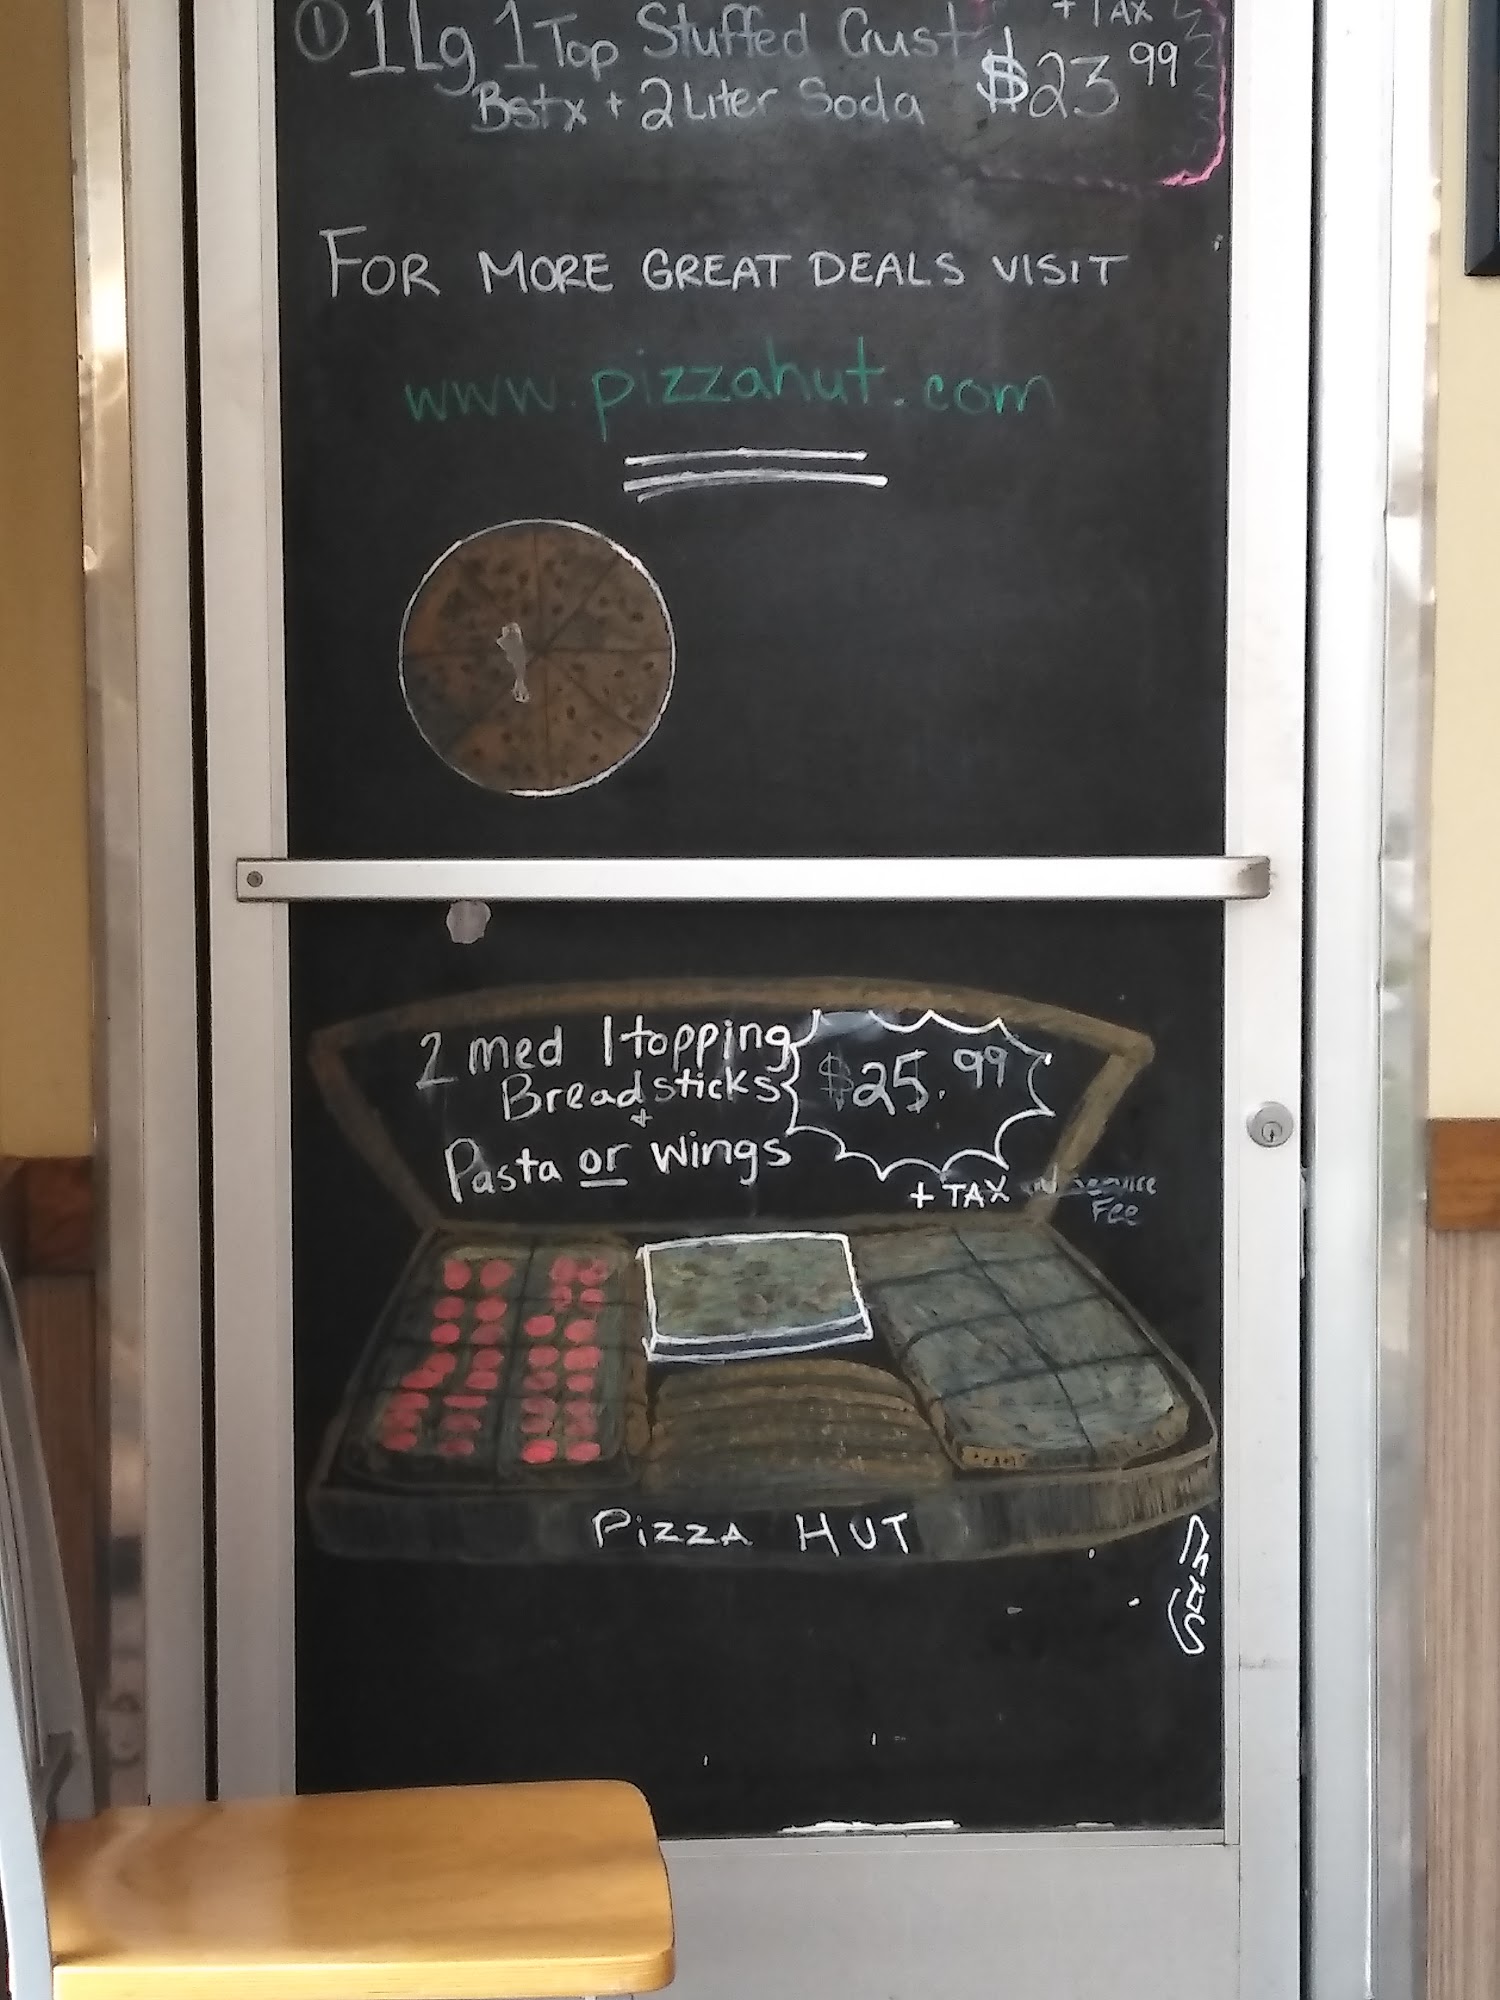 ① 1 Lg 1 Top Stuffed Crust
+ TAX
Bstx + 2 Liter Soda $23 99
FOR MORE GREAT DEALS VISIT
www.pizzahut.com
2 med 1 topping
Breadsticks
+
Pasta or wings
$25.99
+ TAX and Service
Fee
PIZZA HUT